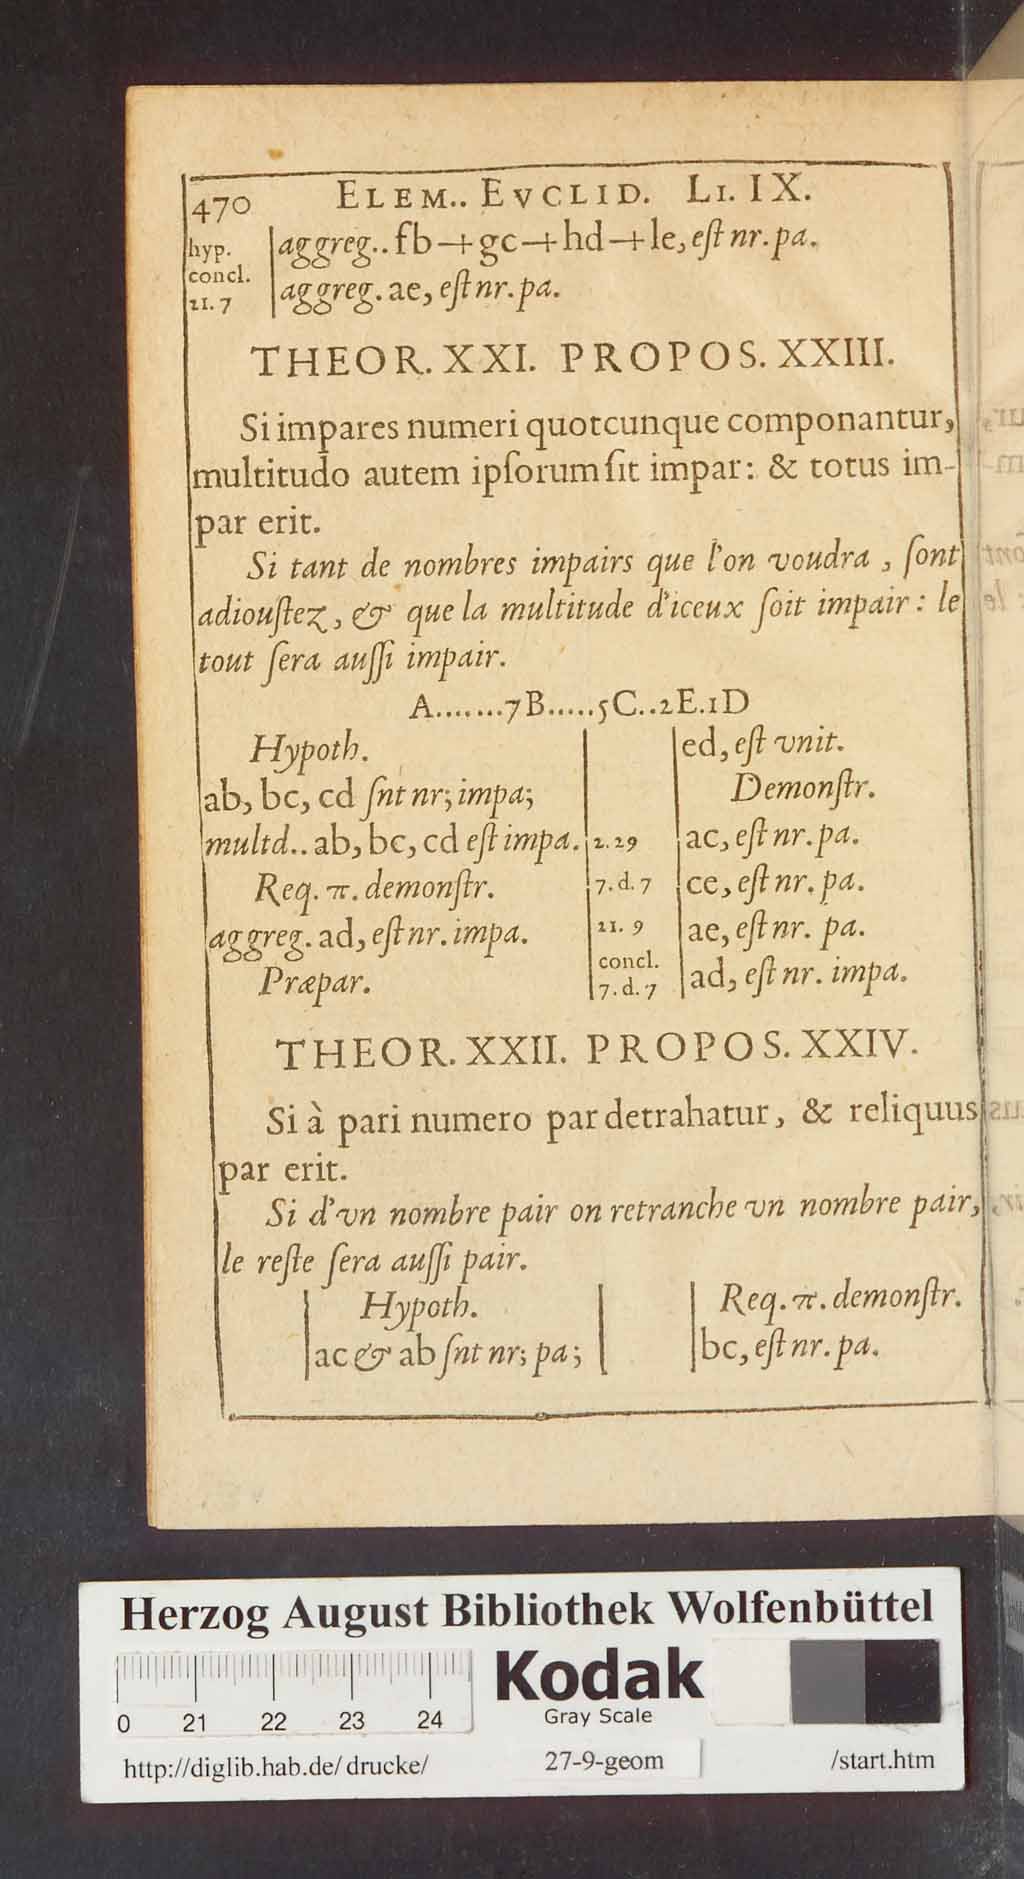 470 ELEM.. EVCLID. LI. IX.
hyp. aggreg.. fb+gc+hd+le, eſt nr. pa.
concl.
21. 7 aggreg. ae, eſt nr. pa.
THEOR. XXI. PROPOS. XXIII.
Si impares numeri quotcunque componantur,
multitudo autem ipſorum ſit impar: & totus im-
par erit.
Si tant de nombres impairs que l'on voudra, ſont
adiouſtez, & que la multitude d'iceux ſoit impair: le
tout ſera auſſi impair.
A.......7B.....5C..2E.1D
Hypoth.
ab, bc, cd ſnt nr; impa;
multd.. ab, bc, cd eſt impa.
Req. π. demonſtr.
aggreg. ad, eſt nr. impa.
Præpar.
ed, eſt vnit.
Demonſtr.
2. 29 ac, eſt nr. pa.
7. d. 7 ce, eſt nr. pa.
21. 9 ae, eſt nr. pa.
concl.
7. d. 7 ad, eſt nr. impa.
THEOR. XXII. PROPOS. XXIV.
Si à pari numero par detrahatur, & reliquus
par erit.
Si d'vn nombre pair on retranche vn nombre pair,
le reſte ſera auſſi pair.
Hypoth.
ac & ab ſnt nr; pa;
Req. π. demonſtr.
bc, eſt nr. pa.
Herzog August Bibliothek Wolfenbüttel
0 21 22 23 24
Kodak
Gray Scale
http://diglib.hab.de/drucke/ 27-9-geom /start.htm